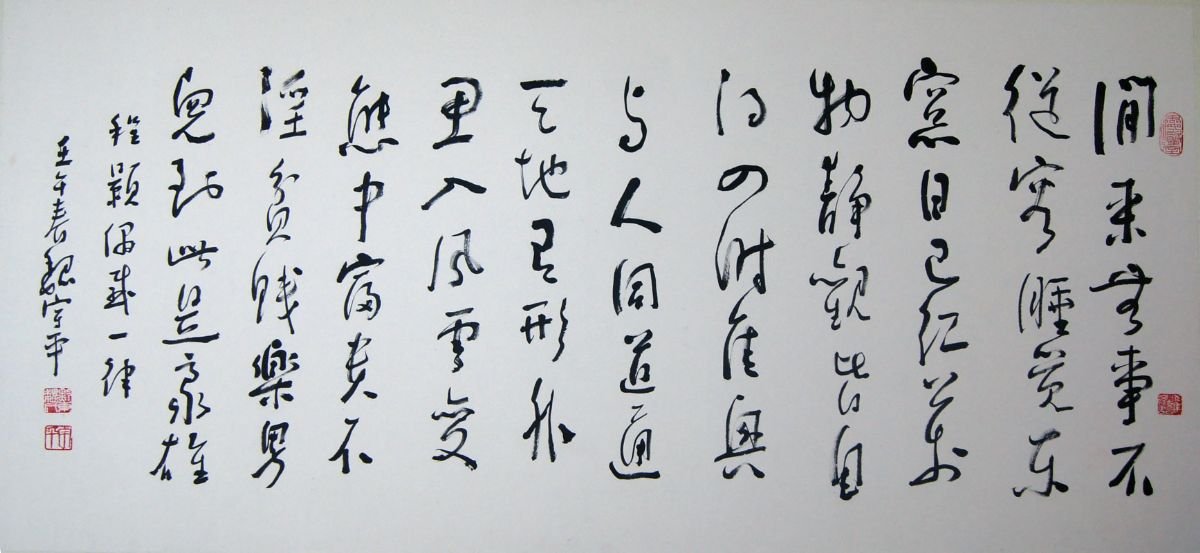 閒來無事不
從容睡覺東
窓日已紅萬
物靜觀皆自
得四時佳興
與人同道通
天地有形外
思入風雲變
態中富貴不
淫貧賤樂男
兒到此是豪雄
程顥偶成一律
壬午春魏宇平